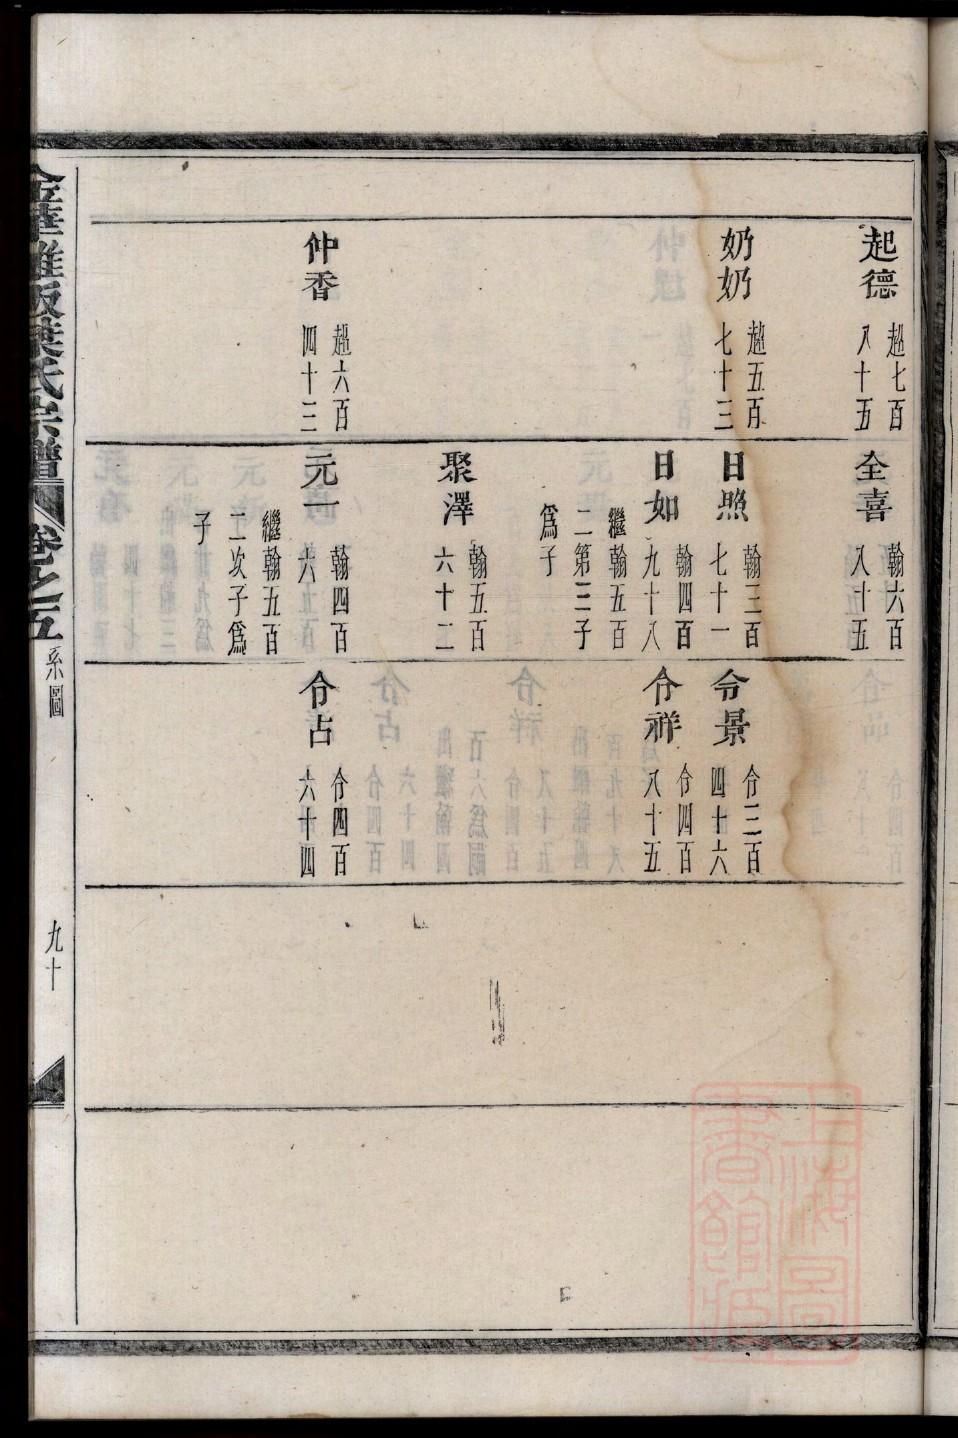 起德
趙七百
八十五
奶奶
趙五百
七十三
仲香
趙六百
四十三
全喜
翰六百
八十五
日照
翰三百
七十一
日如
翰四百
九十八
繼翰五百
二第三子
爲子
聚澤
翰五百
六十二
元一
翰四百
六
繼翰五百
二次子爲
子
令景
令三百
四十六
令祥
令四百
八十五
令占
令四百
六十四
金華雅畈葉氏宗譜
卷之五
系圖
九十
上海圖書館藏